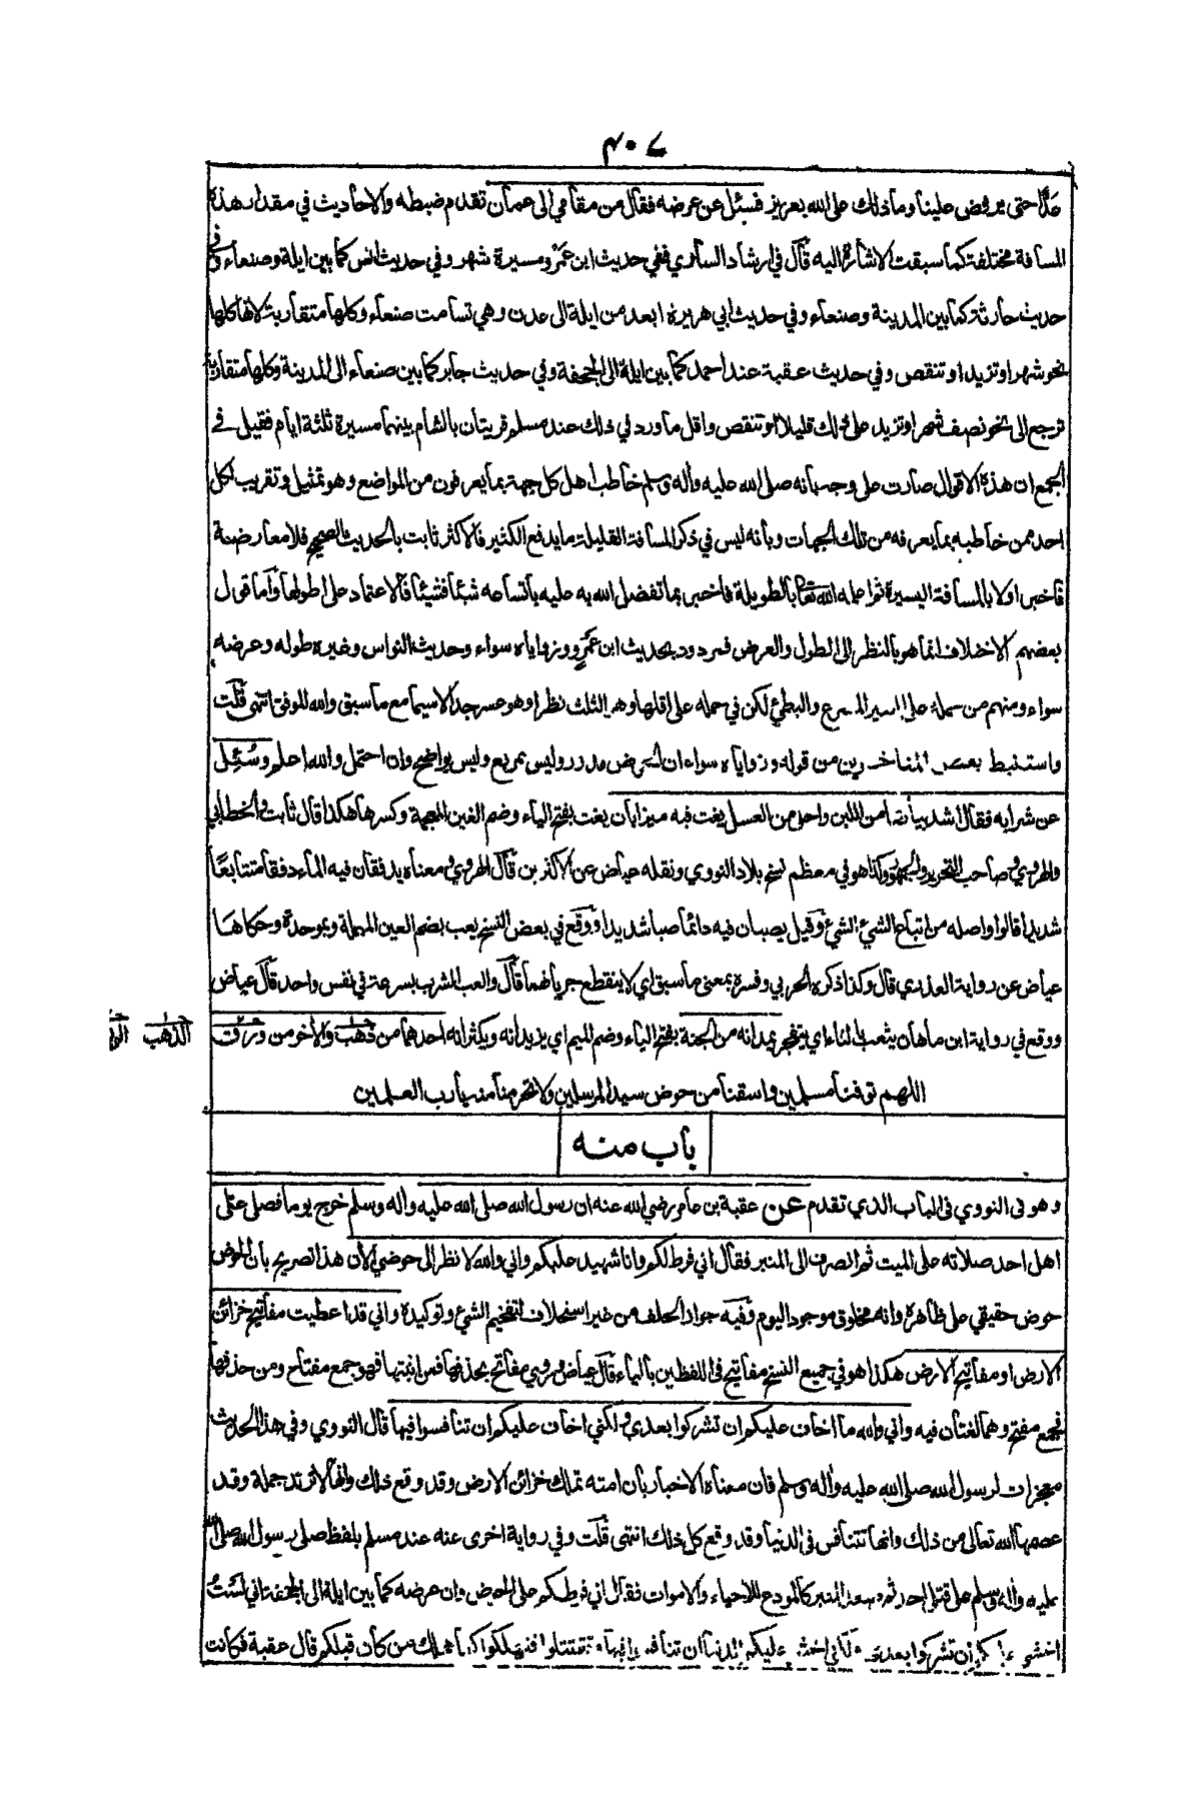 ٤٠٧
حتى يرفض علينا وما ذلك على الله بعزيز فسئل عن عرضه فقال من مقامي الى عمان تقدم ضبطه والاحاديث في مقدار هذه
المسافة مختلفة كما سبقت الاشارة اليه قال في ارشاد الساري ففي حديث ابن عمرو مسيرة شهر وفي حديث انس كما بين ايلة وصنعاء وفي
حديث حارثة كما بين المدينة وصنعاء وفي حديث ابي هريرة ابعد من ايلة الى عدن وهي تسامت صنعاء وكلها متقاربة لانها كلها
نحو شهر او تزيد او تنقص وفي حديث عقبة عند احمد كما بين ايلة الى الجحفة وفي حديث جابر كما بين صنعاء الى المدينة وكلها متقاربة
ترجع الى نحو نصف شهر او تزيد على ذلك قليلا او تنقص واقل ما ورد في ذلك عند مسلم قريتان بالشام بينهما مسيرة ثلثة ايام فقيل في
الجمع ان هذه الاقوال صارت على وجه بانه صلى الله عليه واله وسلم خاطب اهل كل جهة بما يعرفون من المواضع وهو تمثيل وتقريب لكل
احد ممن خاطبه بما يعرفه من تلك الجهات وبانه ليس في ذكر المسافة القليلة ما يدفع الكثير فالاكثر ثابت بالحديث الصحيح فلا معارضة
فاخبر اولا بالمسافة اليسيرة ثم اعلمه الله تعالى بالطويلة فاخبر بما تفضل الله به عليه باتساعه شيئا فشيئا فالاعتماد على اطولها واما قول
بعضهم الاختلاف انما هو بالنظر الى الطول والعرض فمردود بحديث ابن عمرو وزواياه سواء وحديث النواس وغيره طوله وعرضه
سواء ومنهم من حمله على السير المسرع والبطيء لكن في حمله على اقلها وهو الثلث نظر او هو عسر جدا لاسيما مع ما سبق والله الموفق انتهى قلت
واستنبط بعض المتاخرين من قوله وزواياه سواء ان الحوض مدور وليس بمربع وليس بواضح وان احتمل والله اعلم وسئل
عن شرابه فقال اشد بياضا من اللبن واحلى من العسل يغت فيه ميزابان يغت بفتح الياء وضم الغين المعجمة وكسرها هكذا قال ثابت والخطابي
والهروي وصاحب التحرير والجمهور وكذا هو في معظم نسخ بلاد النووي ونقله عياض عن الاكثرين قال الهروي ومعناه يدفقان فيه الماء دفقا متتابعا
شديدا قالوا واصله من اتباع الشيء الشيء وقيل يصبان فيه دائما صبا شديدا ووقع في بعض النسخ يعب بضم العين المهملة وبموحدة وحكاها
عياض عن رواية العذري قال وكذا ذكره الحربي وفسره بمعنى ما سبق اي لا ينقطع جريانهما قال والعب الشرب بسرعة في نفس واحد قال عياض
ووقع في رواية ابن ماهان يثعب بالثاء اي يتفجر يمدانه من الجنة بفتح الياء وضم الميم اي يزيدانه ويكثرانه احدهما من ذهب والآخر من ورق
الذهب
اللهم توفنا مسلمين واسقنا من حوض سيد المرسلين ولا تحرمنا منه يا رب العلمين
باب منه
وهو في النووي في الباب الذي تقدم عن عقبة بن عامر رضي الله عنه ان رسول الله صلى الله عليه واله وسلم خرج يوما فصلى على
اهل احد صلاته على الميت ثم انصرف الى المنبر فقال اني فرط لكم وانا شهيد عليكم واني والله لانظر الى حوضي الآن هذا تصريح بان الحوض
حوض حقيقي على ظاهره وانه مخلوق موجود اليوم وفيه جواز الحلف من غير استحلاف لتفخيم الشيء وتوكيده واني قد اعطيت مفاتيح خزائن
الارض او مفاتيح الارض هكذا هو في جميع النسخ مفاتيح في اللفظين بالياء قال عياض وروي مفاتح بحذفها فمن اثبتها فهو جمع مفتاح ومن حذفها
فجمع مفتح وهما لغتان فيه واني والله ما اخاف عليكم ان تشركوا بعدي ولكني اخاف عليكم ان تنافسوا فيها قال النووي وفي هذا الحديث
معجزات لرسول الله صلى الله عليه واله وسلم فان معناه الاخبار بان امته تملك خزائن الارض وقد وقع ذلك وانها لا ترتد جملة وقد
عصمها الله تعالى من ذلك وانها تتنافس في الدنيا وقد وقع كل ذلك انتهى قلت وفي رواية اخرى عنه عند مسلم بلفظ صلى رسول الله صلى الله
عليه واله وسلم على قتلى احد ثم صعد المنبر كالمودع للاحياء والاموات فقال اني فرطكم على الحوض وان عرضه كما بين ايلة الى الجحفة اني لست
اخشى عليكم ان تشركوا بعدي ولكني اخشى عليكم الدنيا ان تنافسوا فيها وتقتتلوا فتهلكوا كما هلك من كان قبلكم قال عقبة فكانت